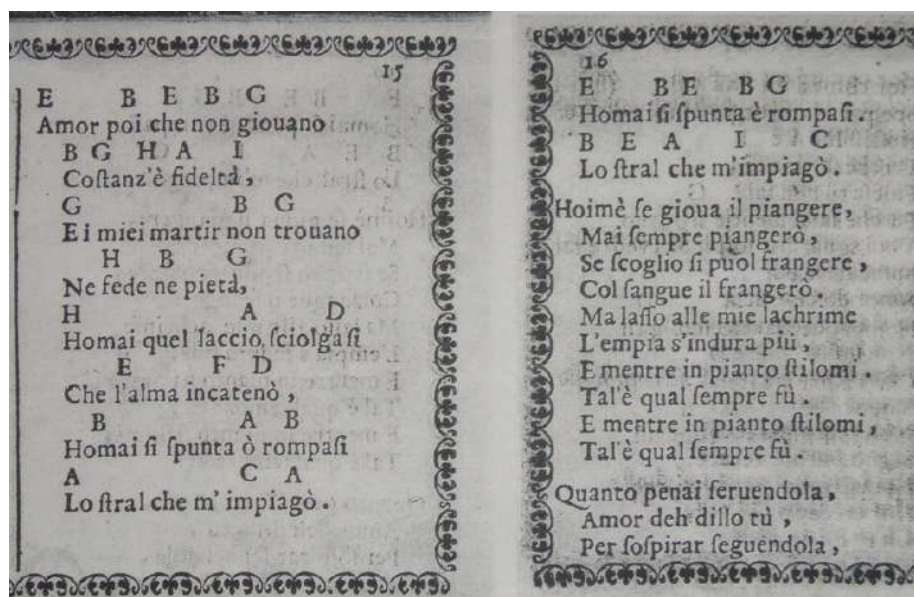 15
E B E B G
Amor poi che non giouano
B G H A I
Coſtanz'è fideltà,
G B G
E i miei martir non trouano
H B G
Ne fede ne pietà,
H A D
Homai quel laccio, ſciolgaſi
E F D
Che l'alma incatenò,
B A B
Homai ſi ſpunta ò rompaſi
A C A
Lo ſtral che m' impiagò.
16
E B E B G
Homai ſi ſpunta è rompaſi.
B E A I C
Lo ſtral che m'impiagò.
Hoimè ſe gioua il piangere,
Mai ſempre piangerò,
Se ſcoglio ſi puol frangere,
Col ſangue il frangerò.
Ma laſſo alle mie lachrime
L'empia s'indura più,
E mentre in pianto ſtilomi.
Tal'è qual ſempre fù.
E mentre in pianto ſtilomi,
Tal'è qual ſempre fù.
Quanto penai ſeruendola,
Amor deh dillo tù,
Per ſoſpirar ſeguendola,